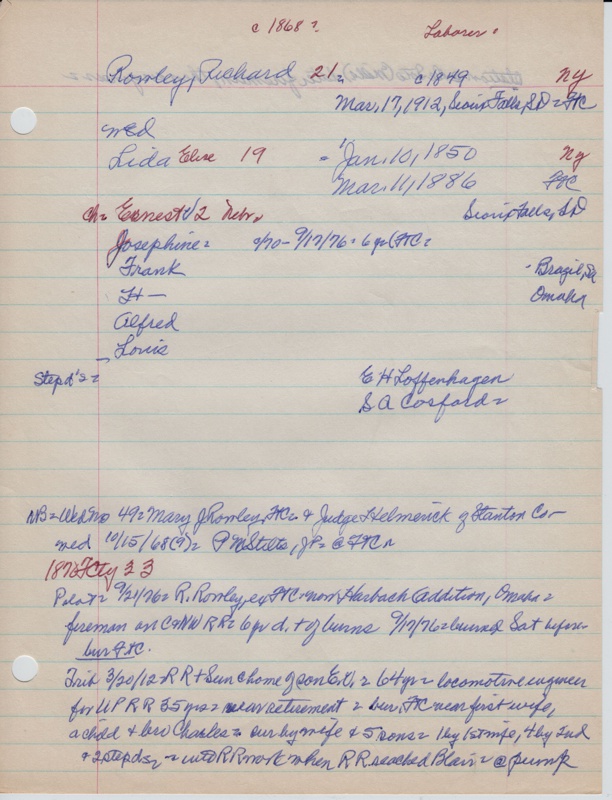 c 1868? Laborer
Rowley, Richard 21 c 1849 NY
Mar. 17, 1912, Sioux Falls, SD = FtC
wed
Lida Elise 19 = Jan. 10, 1850 NY
Mar. 11, 1886 FtC
ch = Earnest 1/2 Nebr. Sioux Falls, SD
Josephine = 2/70 - 9/17/76 = 6 yr (FtC =
Frank - Brazil,
H— Omaha
Alfred
Louis
Stepd's = E H Loffenhagen
S A Cosford =
NB = Wed No 49 = Mary J Rowley, FtC = & Judge Helmerick of Stanton Co —
wed 10/15/68(9) = P McStilts, JP = @ FtC
1876 FCty 33
Pilot = 9/21/76 = R. Rowley, ex FtC now Harbach Addition, Omaha =
foreman on C&NW RR = 6 yr d. + of burns 9/17/76 = burned Sat before
bur FtC.
Trib 3/20/12 = R R + Sun c home of son E.V. = 64 yr = locomotive engineer
for UP RR 35 yrs = near retirement = bur. FC near first wife,
a child & bro Charles = sur by wife & 5 sons = 1 by 1st wife, 4 by 2nd
& 2 stepds, = into RR work when RR reached Blair = @ pump